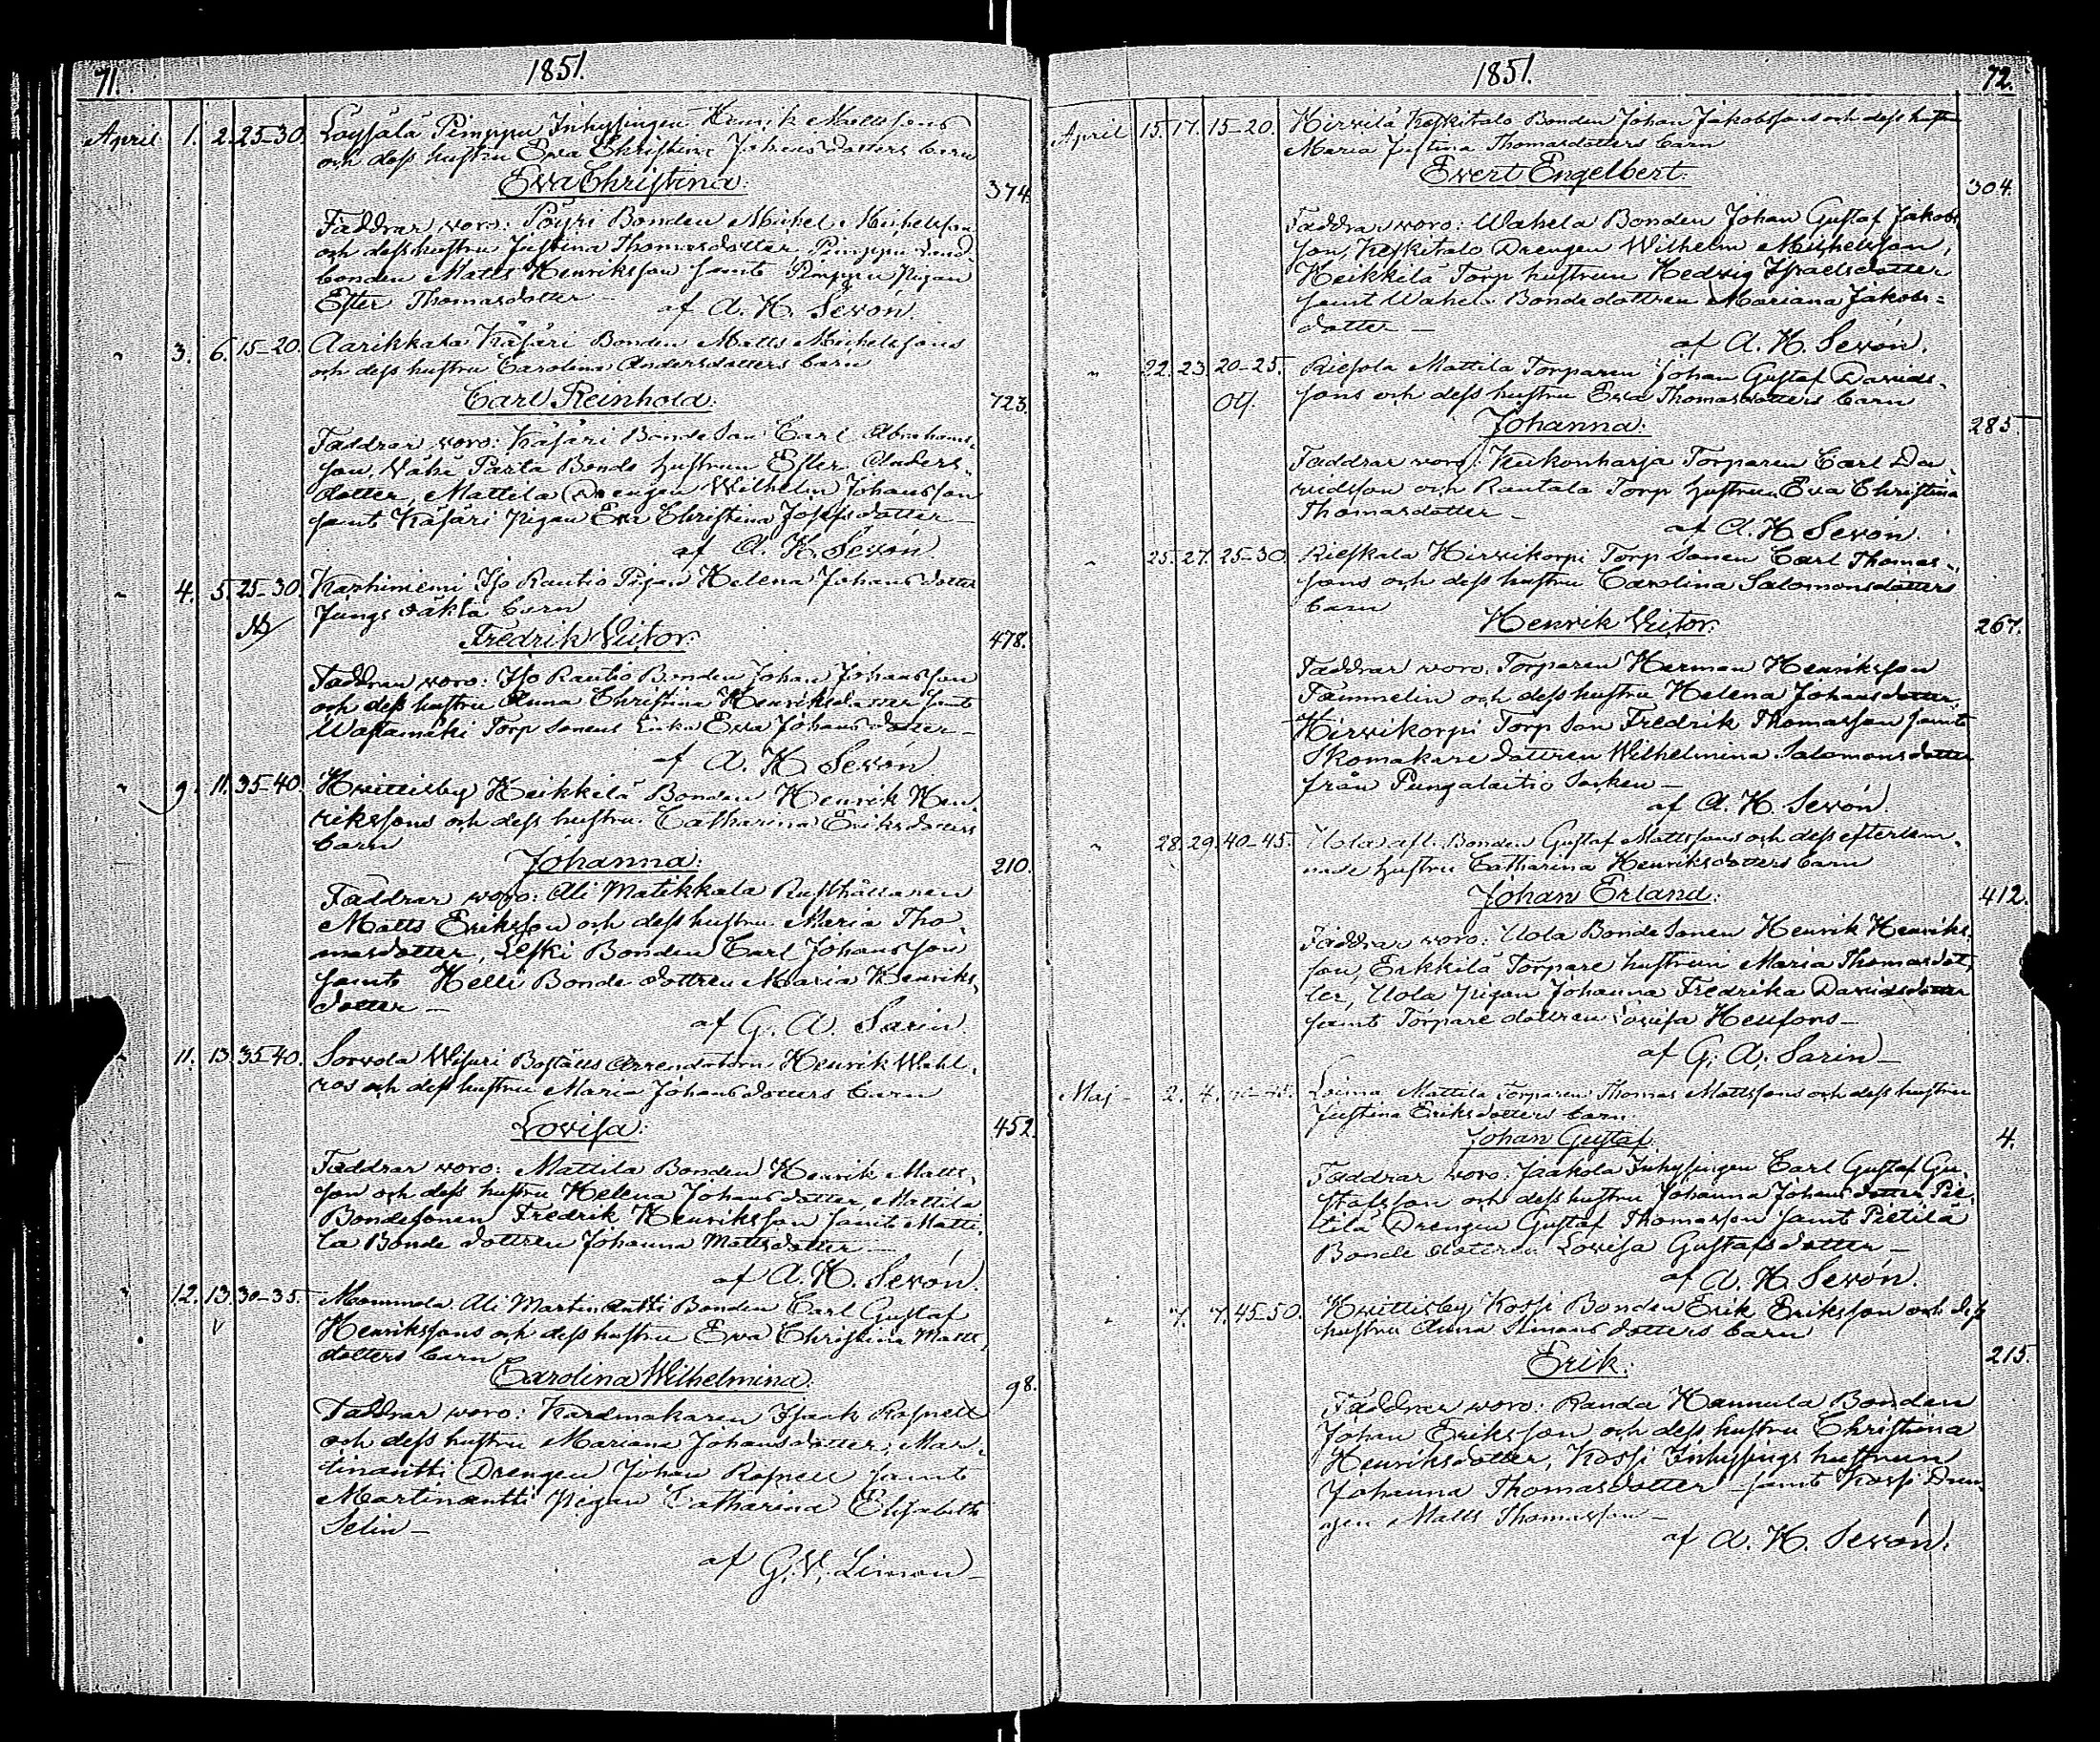 71. 1851.
April 1. 2. 25-30. Loysälä Pimppu Inhysingen Henrik Mattssons
och dess hustru Eva Christina Johansdotters barn
Eva Christina: 374.
Faddrar woro: Pöyri Bonden Michel Michelsson
och dess hustru Justina Thomasdotter, Pimppu Land-
bonden Matts Henriksson samt Pimppu Pigan
Ester Thomasdotter –
af A. H. Sevón.
" 3. 6. 15-20. Aarikkala Käsäri Bonden Matts Michelssons
och dess hustru Carolina Andersdotters barn
Carl Reinhold: 723.
Faddrar woro: Käsäri Bonde Son Carl Abrahams-
son, Vähä Parta Bonde hustrun Ester Anders-
dotter, Mattila Drengen Wilhelm Johansson
samt Käsäri Pigan Eva Christina Josefsdotter –
af A. H. Sevón.
" 4. 5. 25-30. Karhiniemi Iso Rautio Pigan Helena Johansdotter
Jungs oäkta barn
Fredrik Victor: 478.
Faddrar woro: Iso Rautio Bonden Johan Johansson
och dess hustru Anna Christina Henriksdotter samt
Torp Sonens Enka Eva Johansdotter –
af A. H. Sevón.
" 9. 11. 35-40. Hvittisby Heikkilä Bonden Henrik Hen-
rikssons och dess hustru Catharina Eriksdotters
barn
Johanna: 210.
Faddrar woro: Ali Matikkala Rusthållaren
Matts Eriksson och dess hustru Maria Tho-
masdotter, Leski Bonden Carl Johansson
samt Helli Bonde dottren Maria Henriks-
dotter –
af G. A. Sarin.
11. 13. 35-40. Sorvola Wisuri Boställs Arrendatorn Henrik Wahl-
ros och dess hustru Maria Johansdotters barn
Lovisa: 452.
Faddrar woro: Mattila Bonden Henrik Matts-
son och dess hustru Helena Johansdotter, Mattila
Bondesonen Fredrik Henriksson samt Matti-
la Bonde dottren Johanna Mattsdotter –
af A. H. Sevón.
" 12. 13. 30-35. Mommola Ali Martin Antti Bonden Carl Gustaf
Henrikssons och dess hustru Eva Christina Matts-
dotters barn
Carolina Wilhelmina: 98.
Faddrar woro: Kardmakaren Isaak Rosnell
och dess hustru Mariana Johansdotter, Mar-
tinantti Drengen Johan Rosnell samt
Martinantti Pigan Catharina Elisabeth
Selin –
af G. V. Limon –
1851. 72.
April 15. 17. 15-20. Hirvilä Keskitalo Bonden Johan Jakobssons och dess hustru
Maria Justina Thomasdotters barn
Evert Engelbert: 304.
Faddrar woro: Wahela Bonden Johan Gustaf Jakobs-
son, Keskitalo Drengen Wilhelm Michelsson,
Heikkilä Torp hustrun Hedvig Israelsdotter
samt Wahela Bondedottren Mariana Jakobs-
dotter –
af A. H. Sevón.
" 22. 23. 20-25. Riesola Mattila Torparen Johan Gustaf Davids-
sons och dess hustru Eva Thomasdotters barn
Johanna: 285.
Faddrar woro: Kukonharja Torparen Carl Da-
vidsson och Rautala Torp hustrun Eva Christina
Thomasdotter –
af A. H. Sevón.
" 25. 27. 25-30. Rieskala Hirvikorpi Torp Sonen Carl Thomas-
sons och dess hustru Carolina Salomonsdotters
barn
Henrik Victor: 267.
Faddrar woro: Torparen Herman Henriksson
Tammelin och dess hustru Helena Johansdotter,
Hirvikorpi Torp Son Fredrik Thomasson samt
Skomakare dottren Wilhelmina Salomonsdotter
från Pungalaitio Socken –
af A. H. Sevón.
" 28. 29. 40-45. Uola afl. Bonden Gustaf Mattssons och dess efterlem-
nade hustru Catharina Henriksdotters barn
Johan Erland: 412.
Faddrar woro: Uola Bonde Sonen Henrik Henriks-
son, Erkkilä Torpare hustrun Maria Thomasdot-
ter, Uola Pigan Johanna Fredrika Davidsdotter
samt Torpare dottren Lovisa Heufors –
af G. A. Sarin –
Maj 2. 4. 40-45. Loima Mattila Torparen Thomas Mattssons och dess hustru
Justina Eriksdotters barn
Johan Gustaf 4.
Faddrar woro: Jaakola Inhysingen Carl Gustaf Gu-
stafsson och dess hustru Johanna Johansdotter, Pie-
tilä Drengen Gustaf Thomasson samt Pietilä
Bonde dottren Lovisa Gustafsdotter –
af A. H. Sevón.
" 7. 7. 45-50. Hvittisby Kossi Bonden Erik Eriksson och dess
hustru Anna Simonsdotters barn
Erik: 215.
Faddrar woro: Randa Hannula Bonden
Johan Eriksson och dess hustru Christina
Henriksdotter, Kossi Inhysings hustrun
Johanna Thomasdotter – samt Kossi Dren-
gen Matts Thomasson –
af A. H. Sevón.